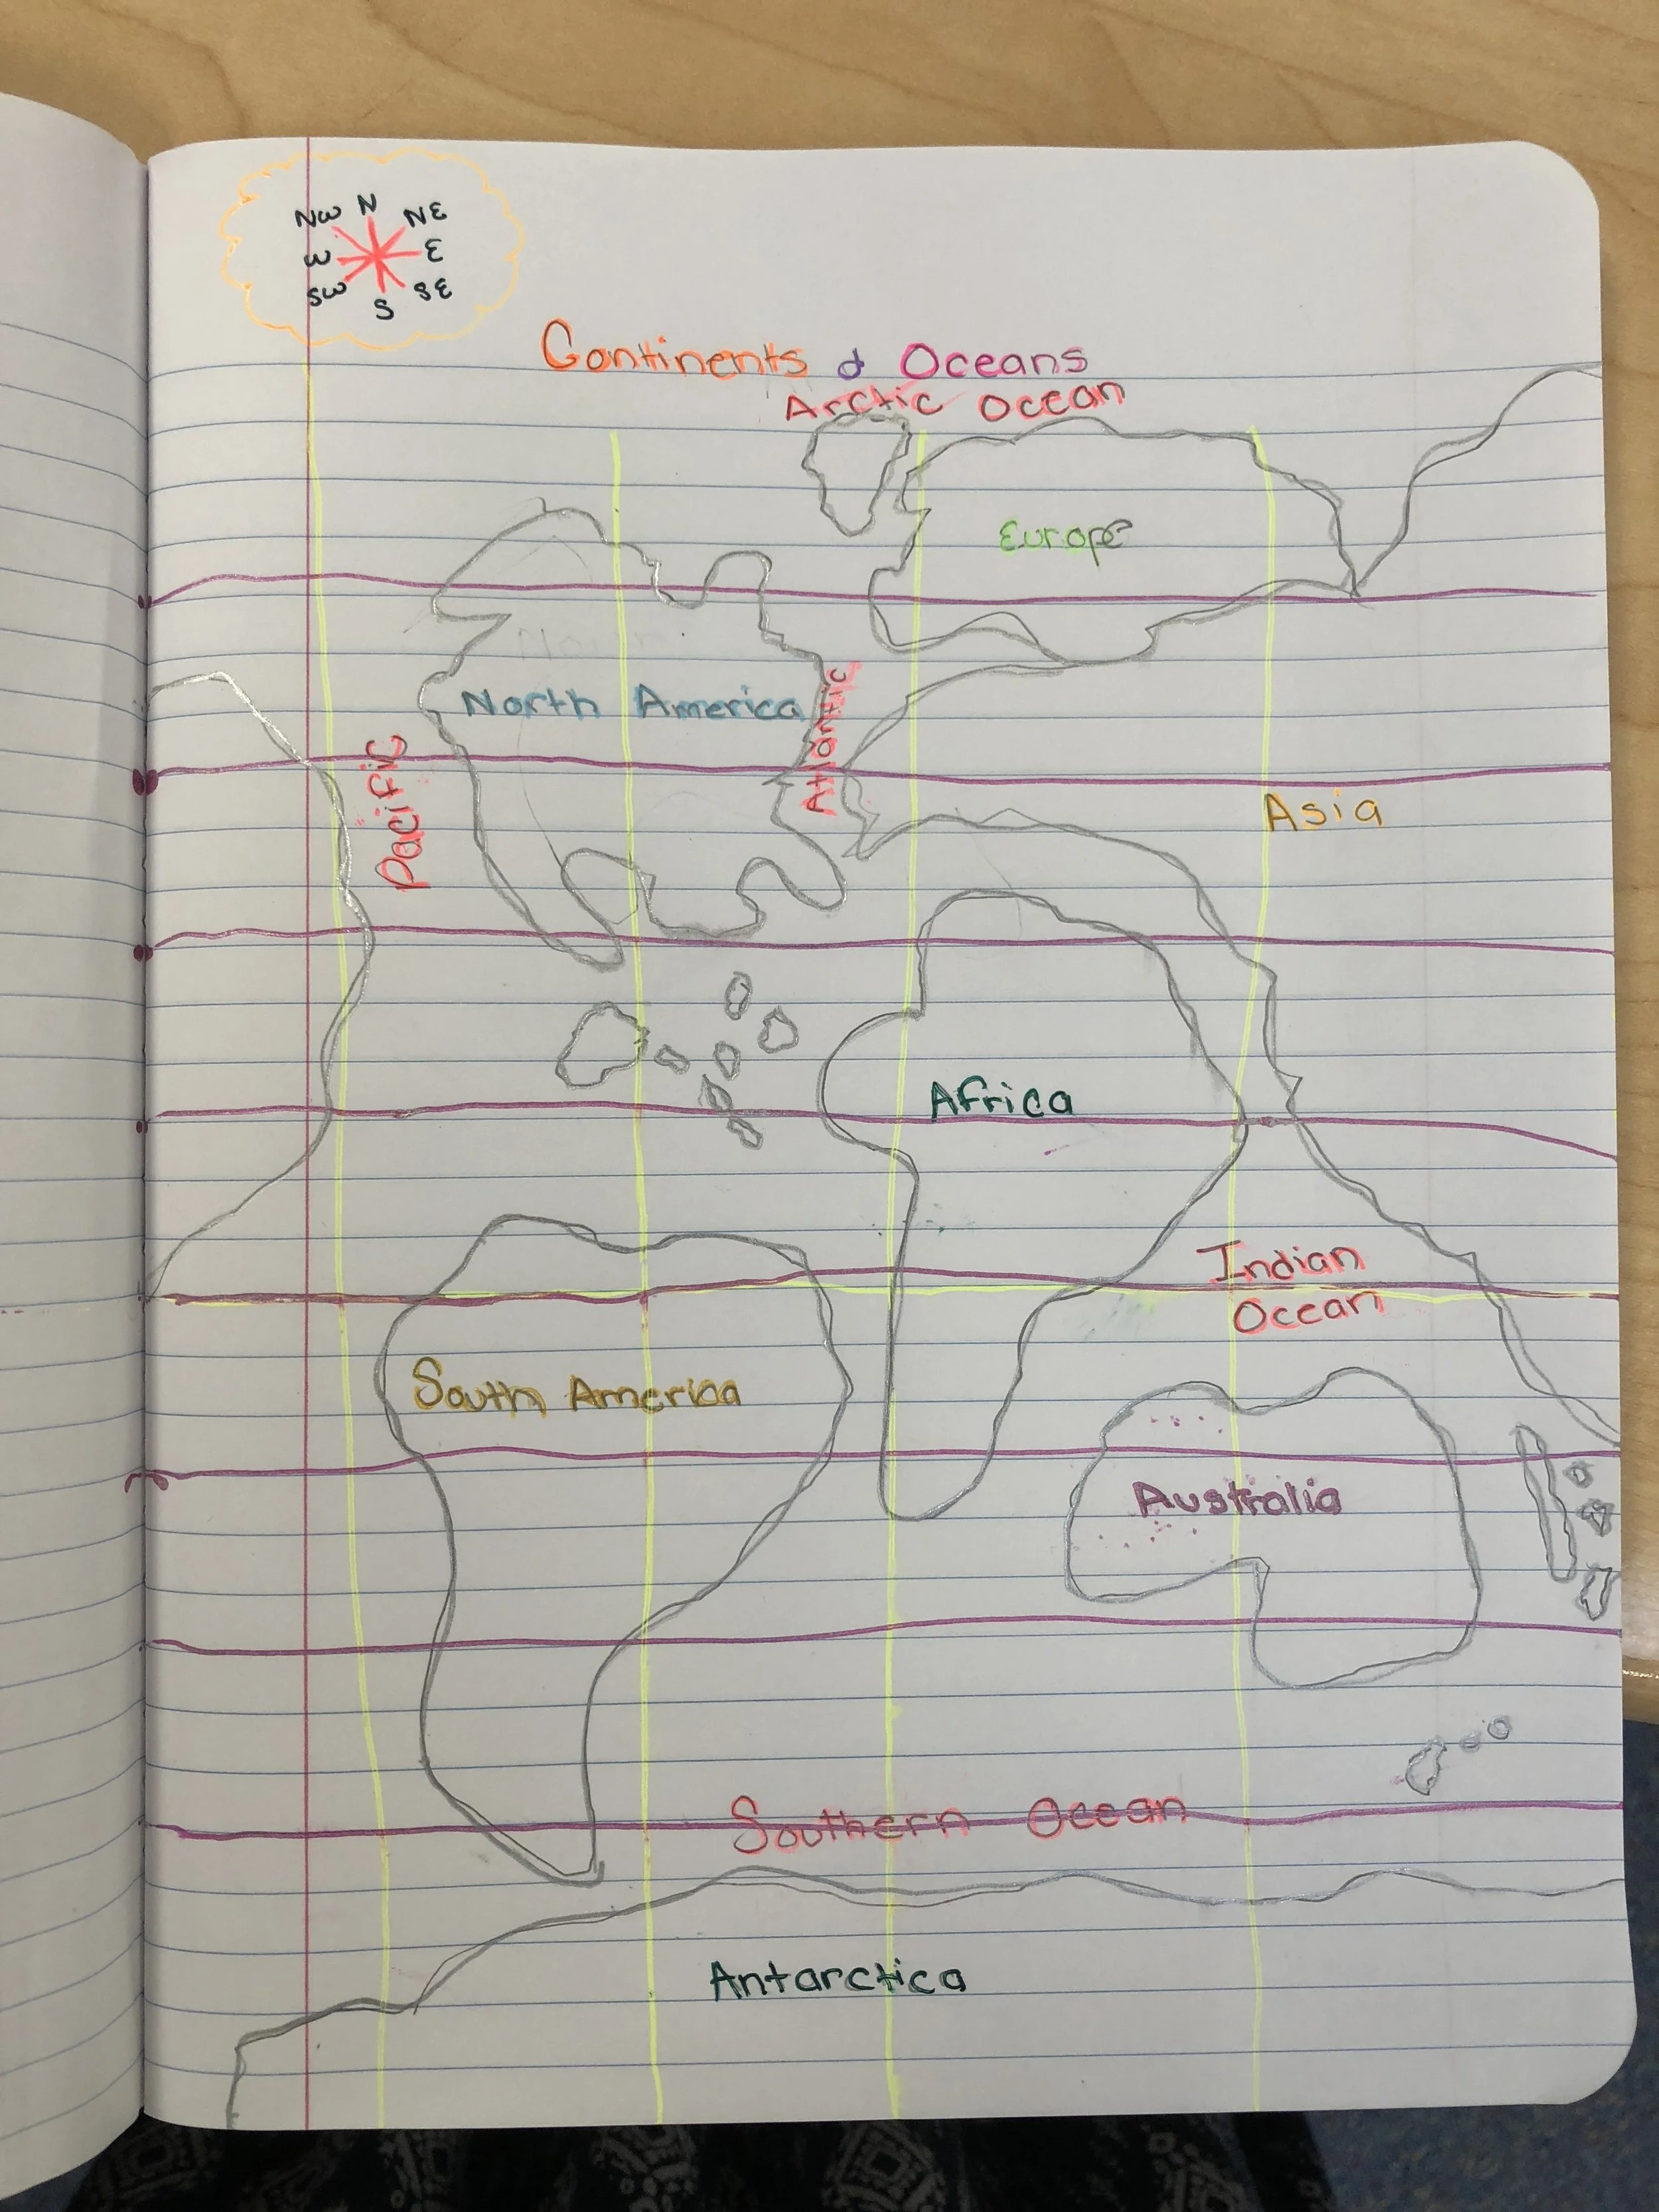 NW N NE
W E
SW S SE
Continents & Oceans
Arctic Ocean
Europe
North America
Atlantic
Pacific
Asia
Africa
Indian
Ocean
South America
Australia
Southern Ocean
Antarctica